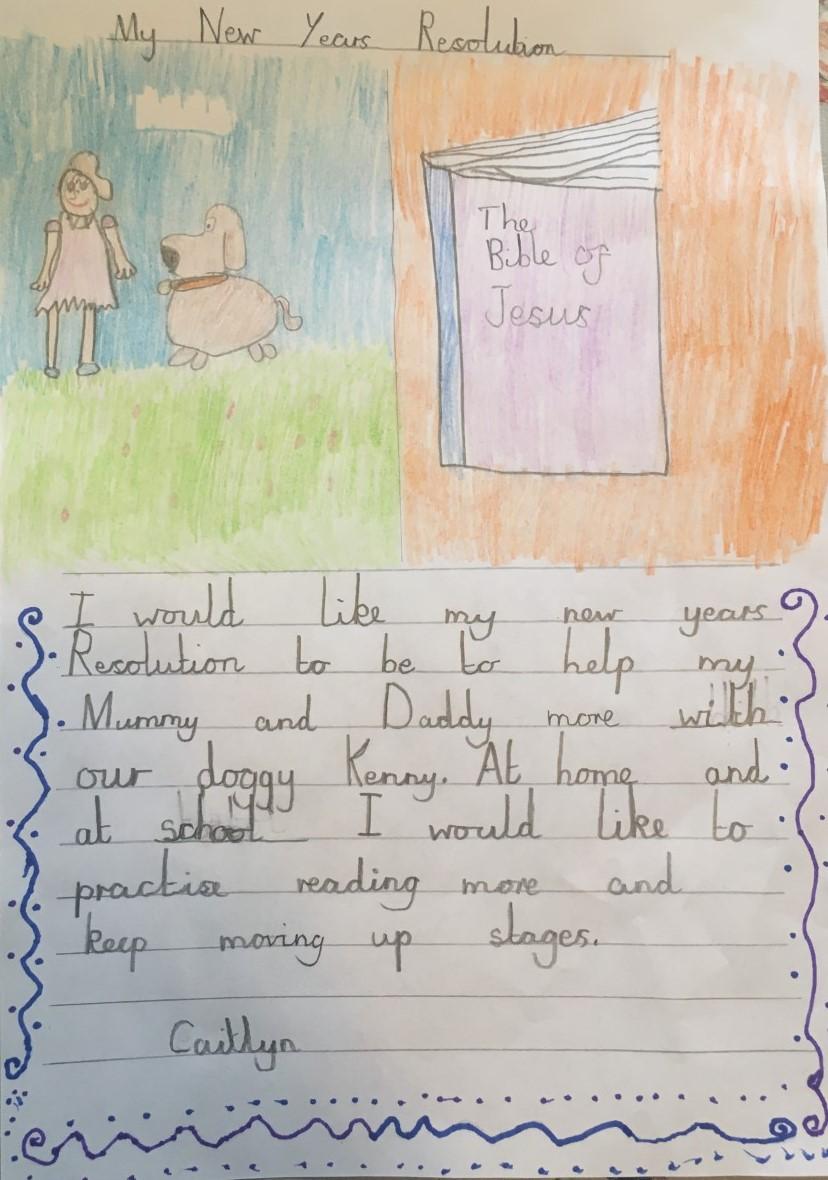 My New Years Resolution
The
Bible of
Jesus
I would like my new years
Resolution to be to help my
Mummy and Daddy more with
our doggy Kenny. At home and
at school I would like to
practise reading more and
keep moving up stages.
Caitlyn